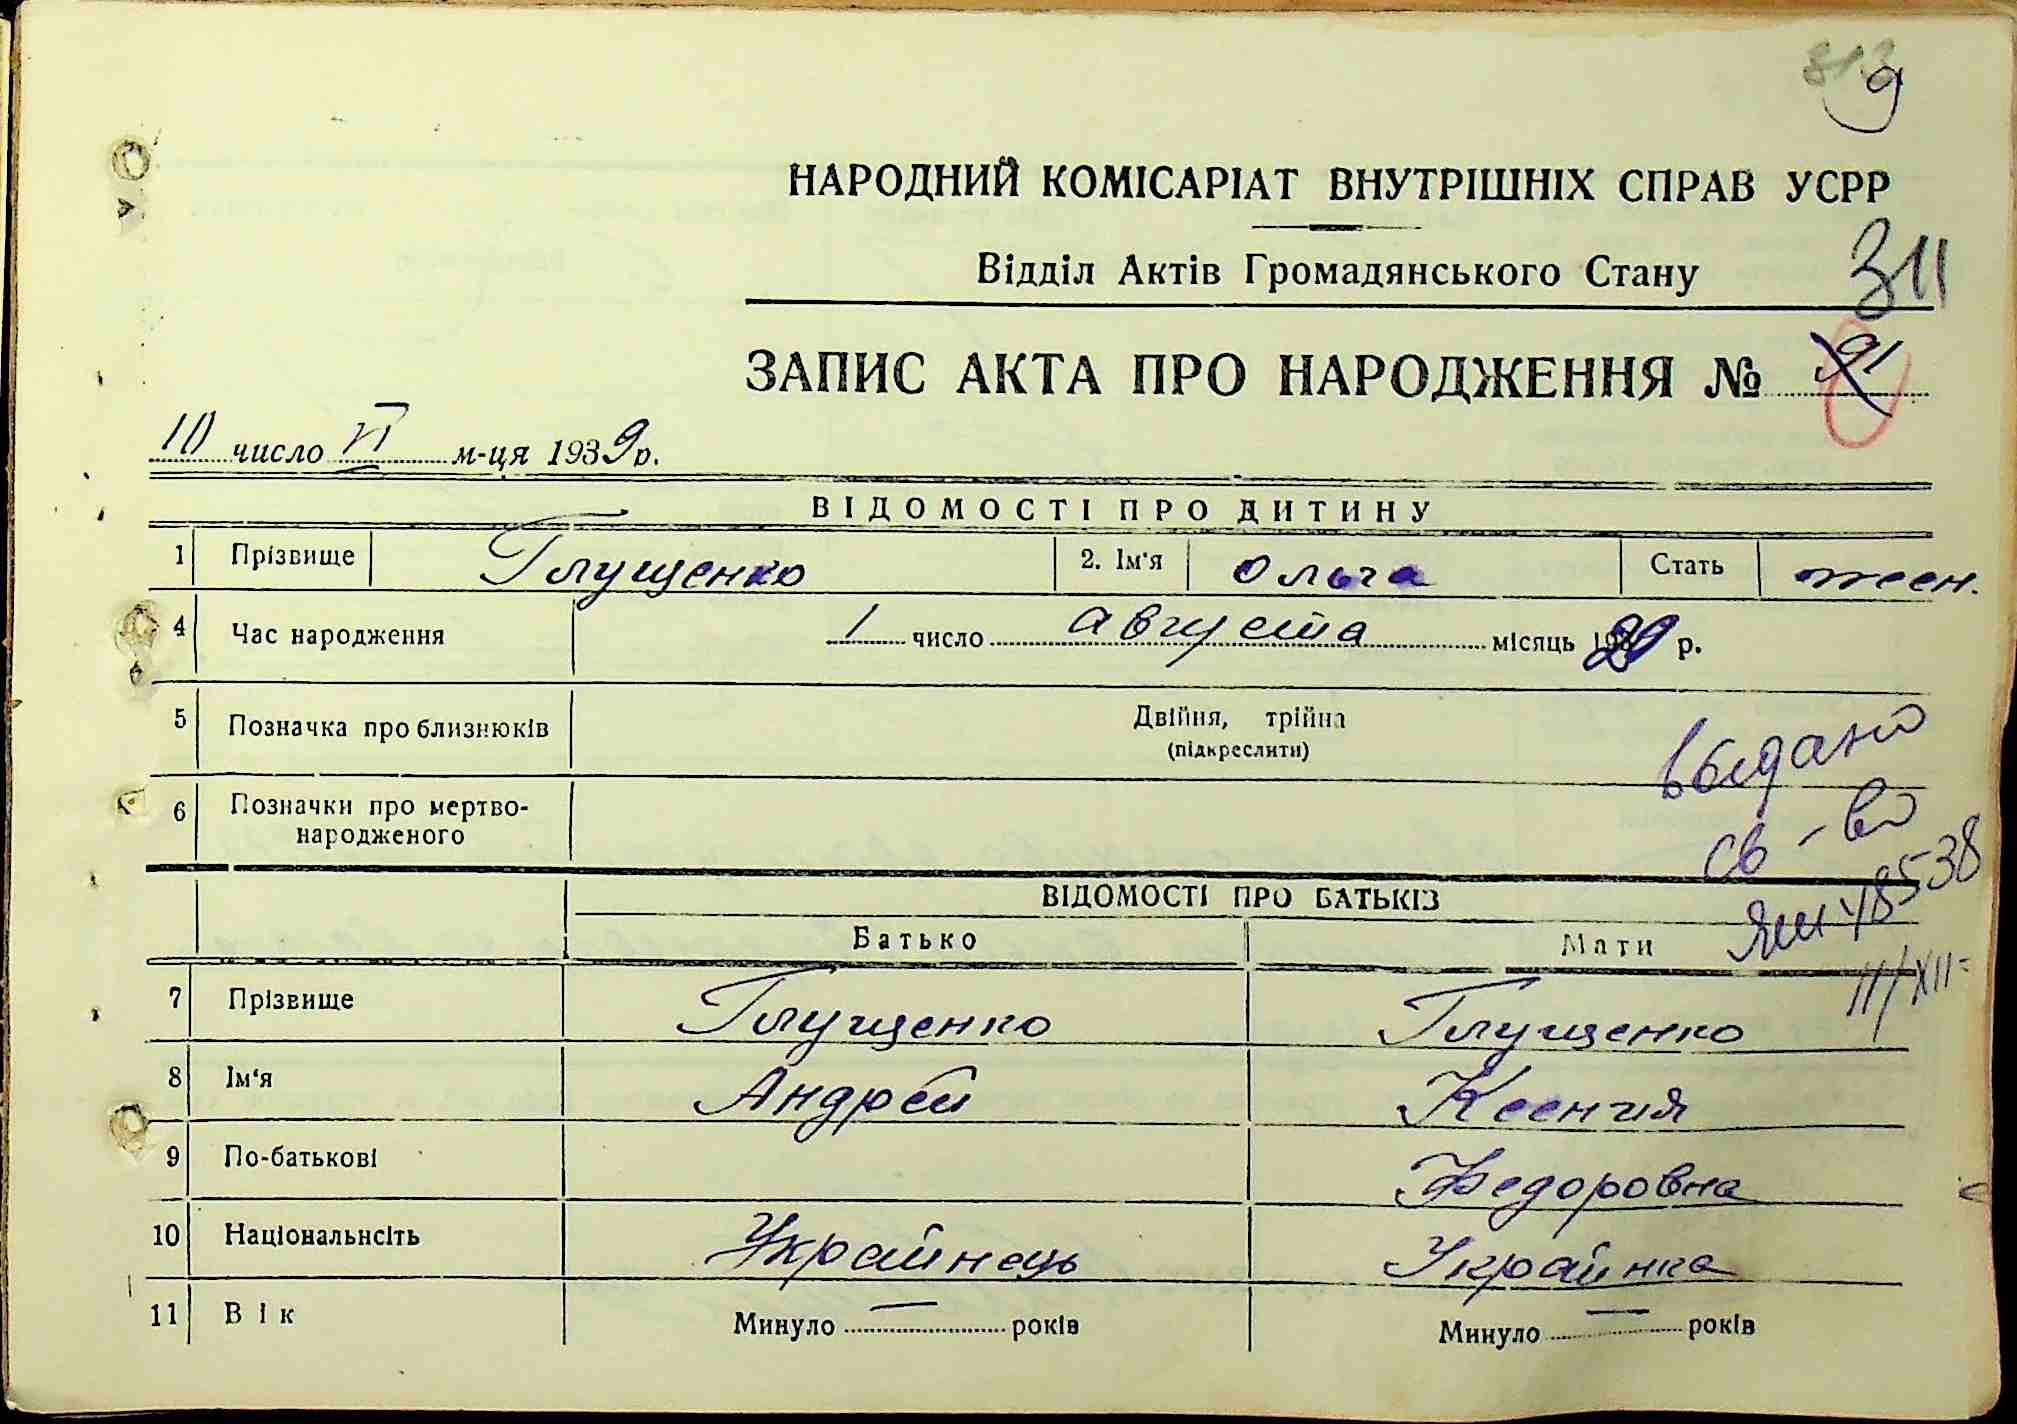 9
НАРОДНИЙ КОМІСАРІАТ ВНУТРІШНІХ СПРАВ УСРР
Відділ Актів Громадянського Стану
311
ЗАПИС АКТА ПРО НАРОДЖЕННЯ № 91
10 число VI м-ця 1939 р.
ВІДОМОСТІ ПРО ДИТИНУ
1 Прізвище Глущенко 2. Ім'я Ольга Стать жен.
4 Час народження 1 число августа місяць р.
5 Позначка про близнюків Двійня, трійна
(підкреслити)
выдано
6 Позначки про мертво-
народженого
св-во
18538
ВІДОМОСТІ ПРО БАТЬКІВ
Батько Мати
11/XII
7 Прізвище Глущенко Глущенко
8 Ім'я Андрей Ксения
9 По-батькові Федоровна
10 Національнсіть Украйнець Украйнка
11 Вік Минуло — років Минуло — років